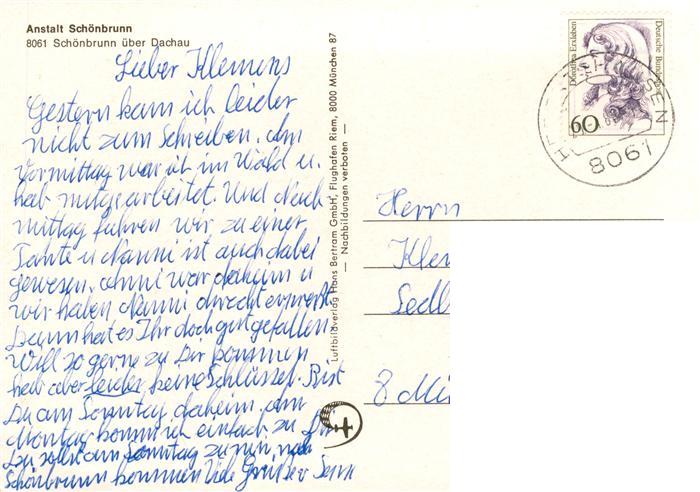 Anstalt Schönbrunn
8061 Schönbrunn über Dachau
Lieber Klemens
Gestern kam ich leider
nicht zum Schreiben. Am
Vormittag war ich im Wald u.
hab mitgearbeitet. Und Nach
mittag fuhren wir zu einer
Tante u Nanni ist auch dabei
gewesen. Anni war daheim u
wir haben Nanni
Dann hat es Ihr doch gut gefallen
Will so gerne zu Dir kommen
hab aber leider keine Schlüssel. Bist
Du am Sonntag daheim. Am
Montag komm ich einfach zu Dir
Du sollst am Sonntag zu mir nach
Schönbrunn kommen Viele Grüße
Luftbildverlag Hans Bertram GmbH, Flughafen Riem, 8000 München 87
— Nachbildungen verboten —
Dorothea Erxleben
Deutsche Bundespost
60
8061
Herrn
Klem
Sedl
8 Mü